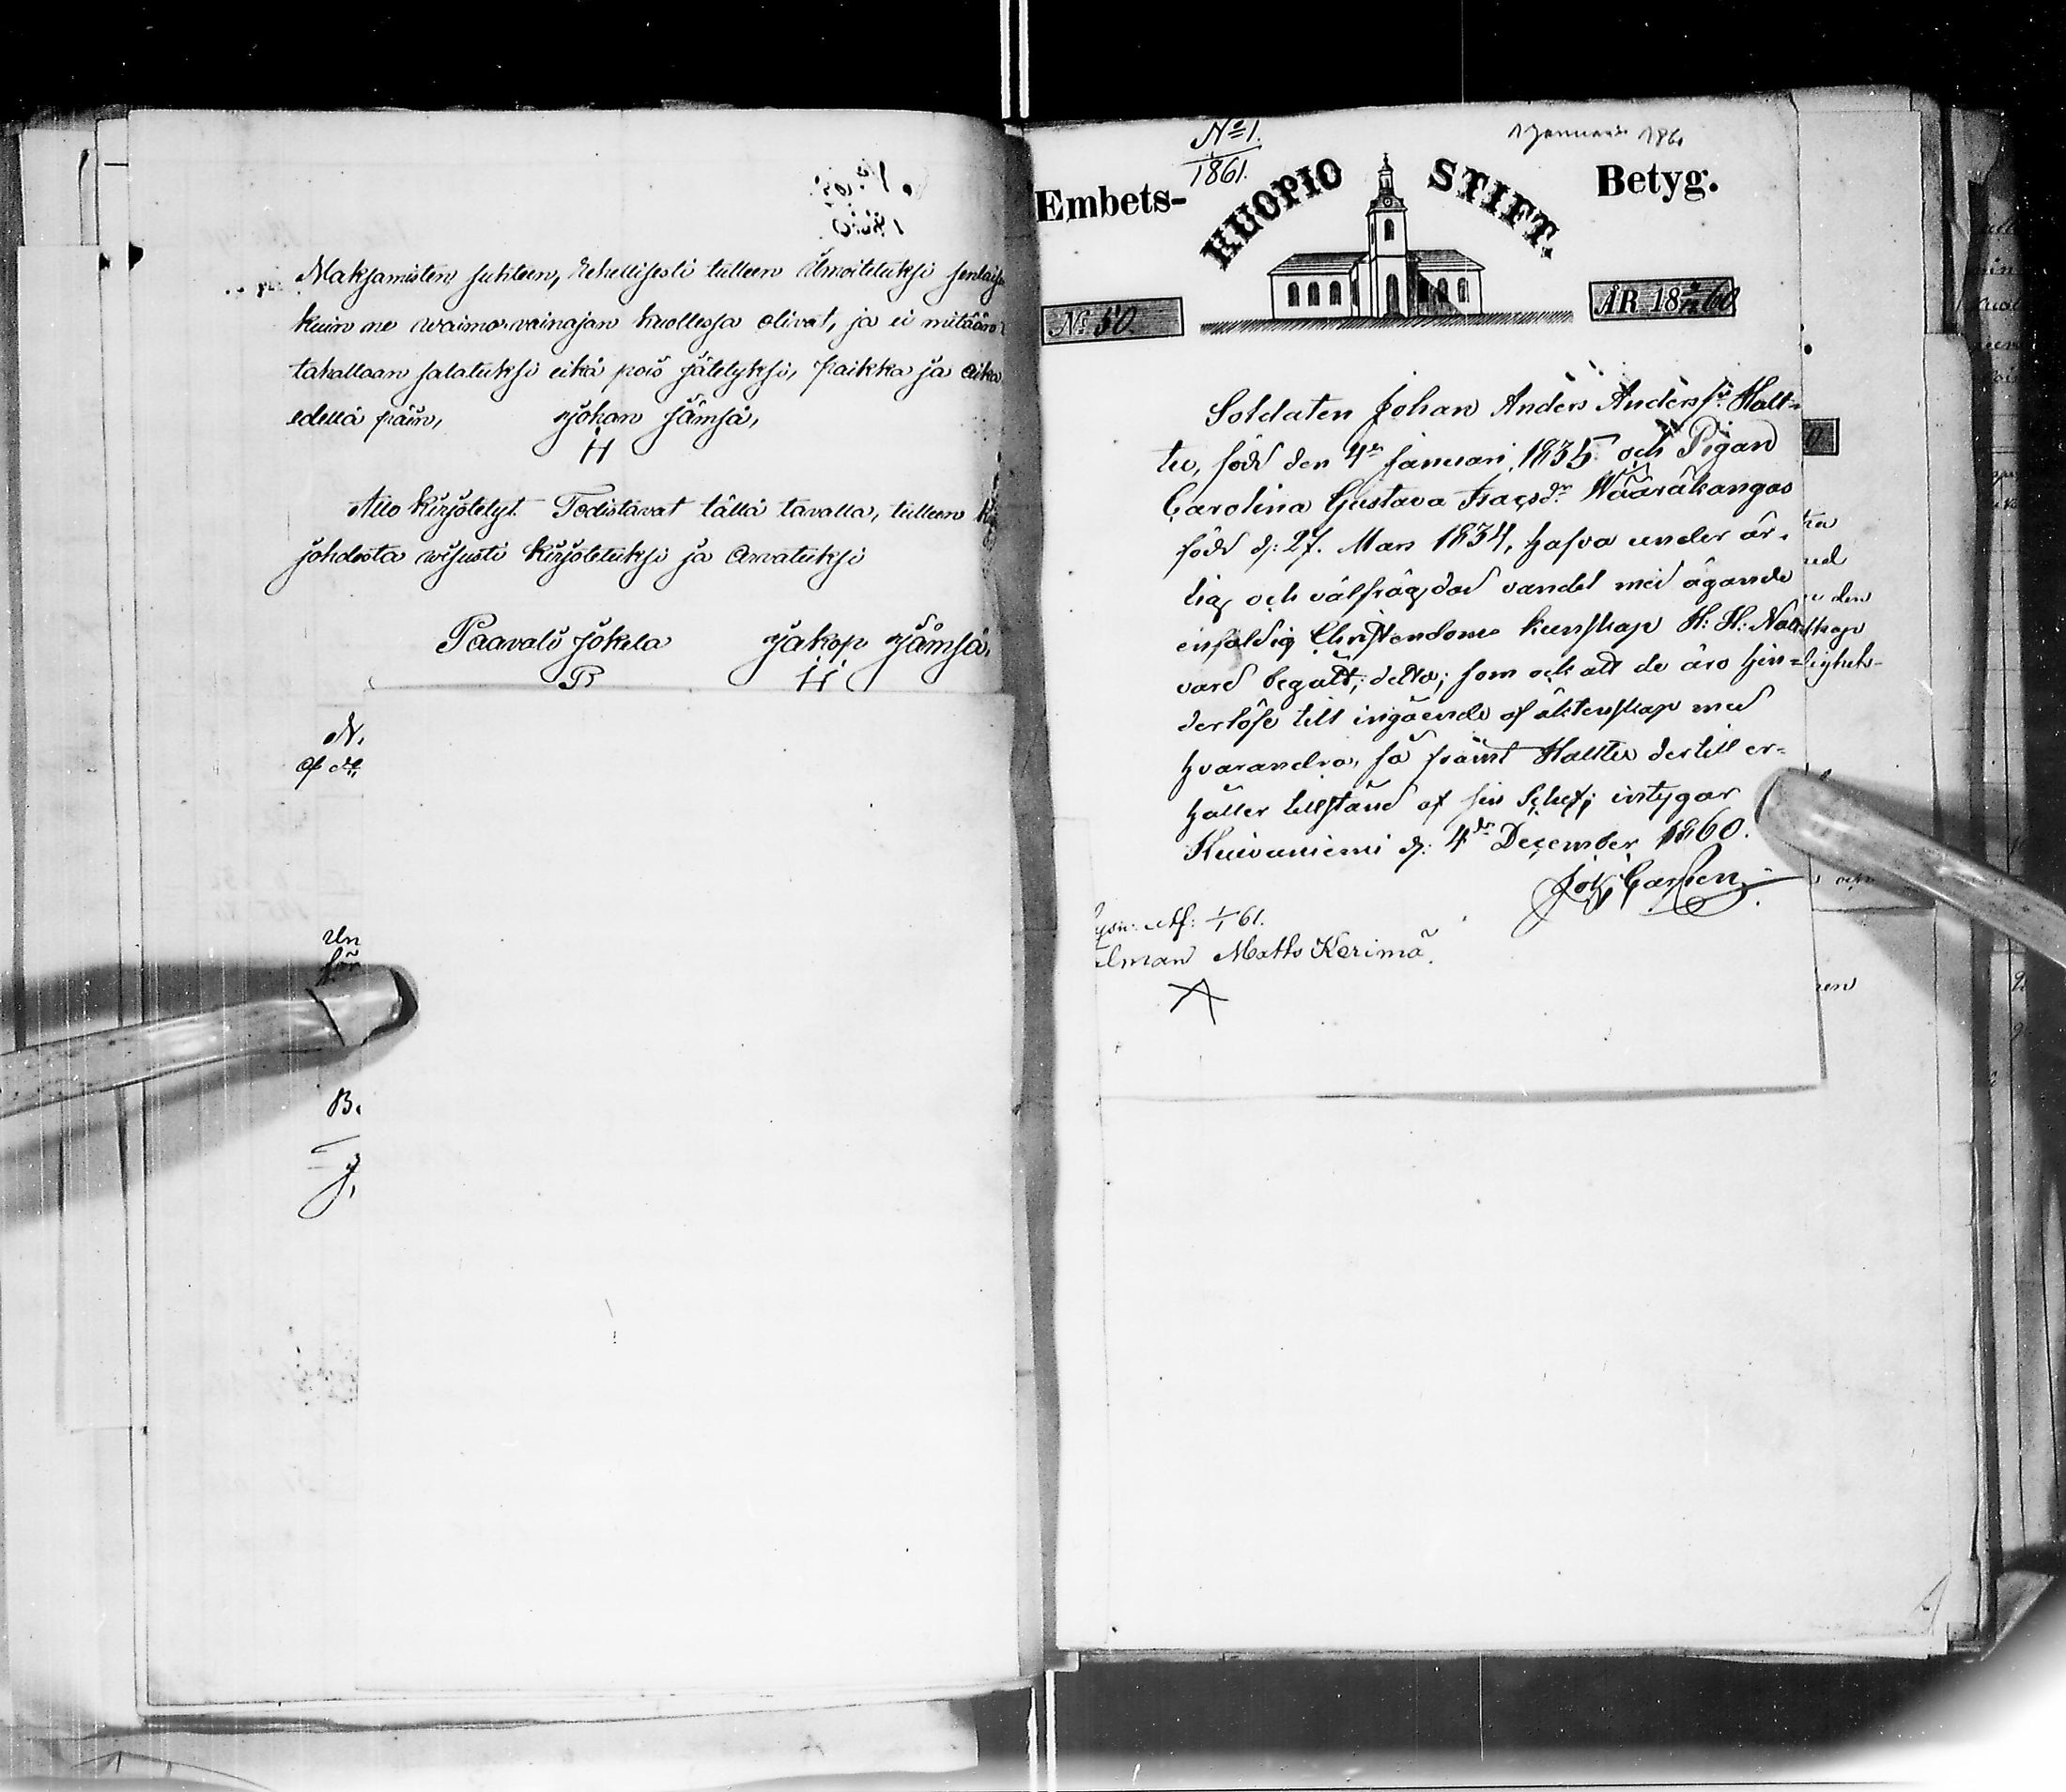 Maksamisten suhteen, rehellisesti tulleen ilmoitetuksi senlaise
kuin ne waimo vainajan kuollessa olivat, ja ei mitään
tahallaan salatuksi eikä pois jätetyksi, paikka ja aika
edellä päin,
Johan Jämsä,
H
Alle kirjotetyt Todistavat tällä tavalla, tulleen
johdosta visusti kirjotetuksi ja Arvatuksi
Paavali Jokela Jakop Jämsä.
P H
N.
B.
No 1.
1861.
1 Januari 186
Embets-
KUOPIO STIFT.
Betyg.
No 50.
ÅR 18 60
Soldaten Johan Anders Anders Halt=
tu, född den 4de Januari 1835 och Pigan
Carolina Gustava Isacsdr Wääräkangas
född d: 27. Mars 1834, hafva under är-
lig och välfrägdad vandel med ägande
enfaldig Christendoms kunskap H: H: Natt
vard begått; detta; som ock att de äro hin=
derlöse till ingående af äktenskap med
hvarandra, så framt Halttu dertill er=
håller tillstånd af sin Chef; intygar
Kuivaniemi d: 4de December 1860.
Joh Carlsen
1/1 61.
Matts Kerimä.